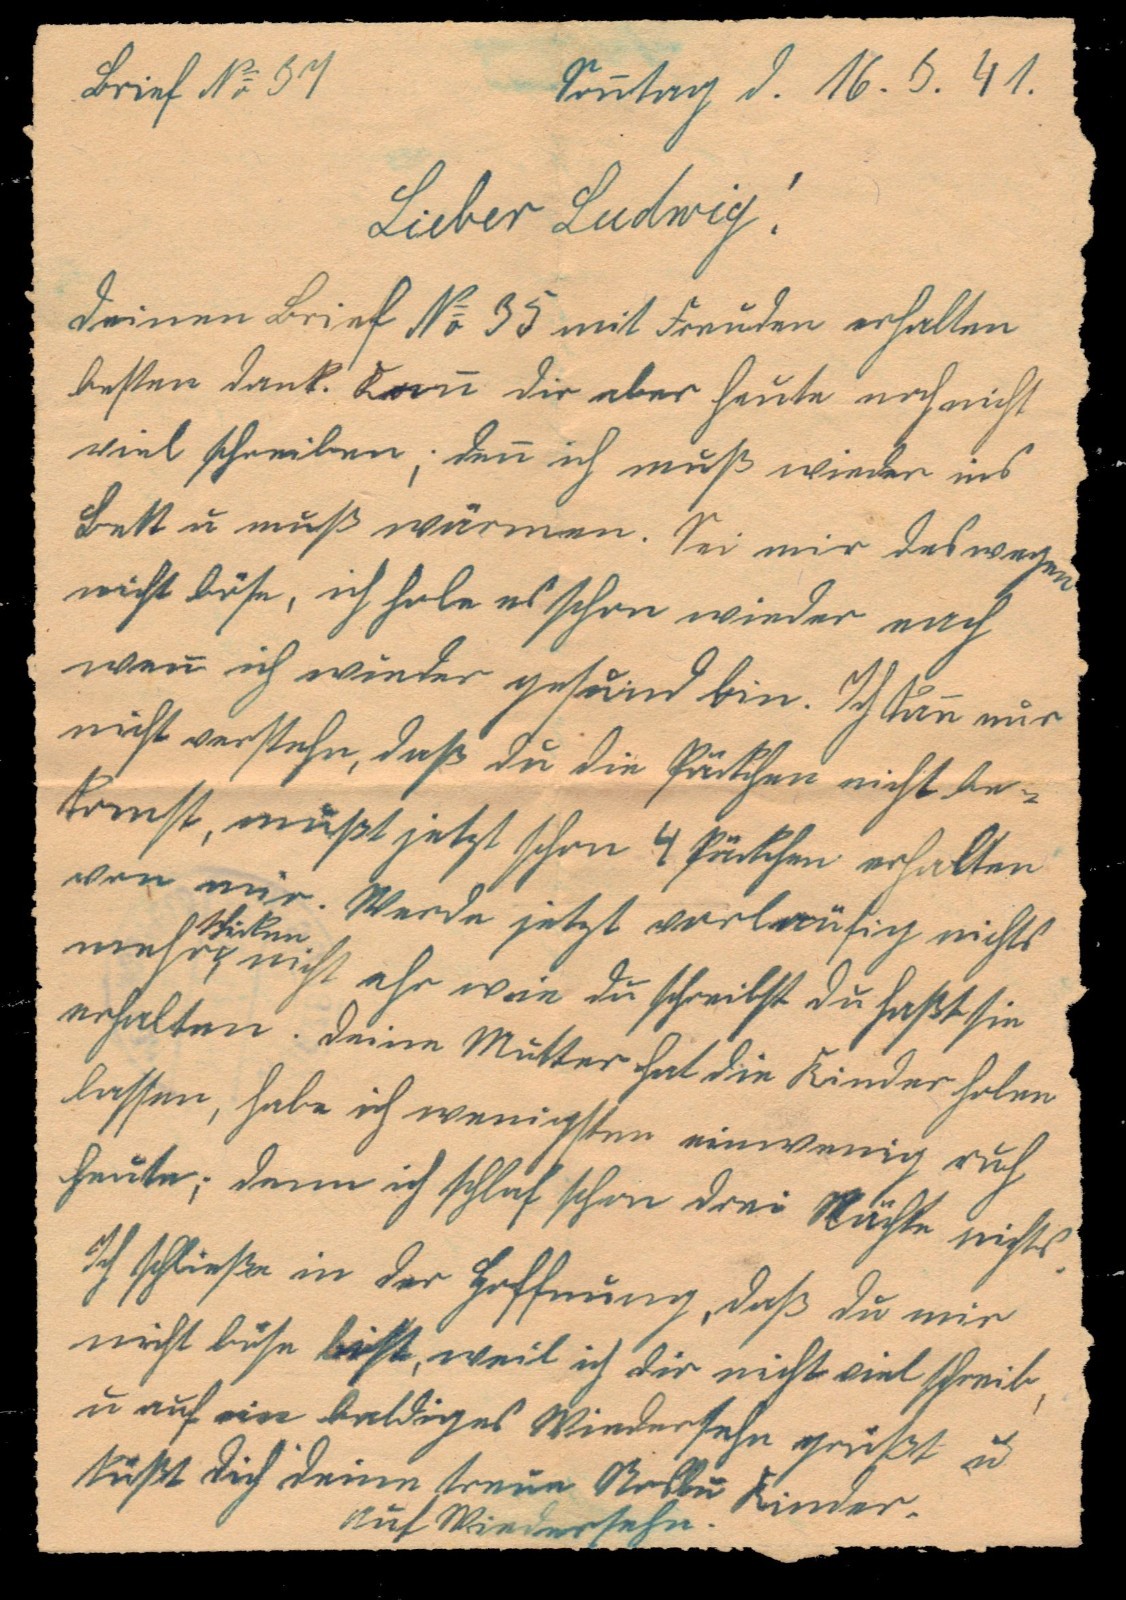 Brief No 37
Sonntag d. 16. 3. 41.
Lieber Ludwig!
Deinen Brief No 35 mit Freuden erhalten
besten Dank. Kann dir aber heute noch nicht
viel schreiben; denn ich muß wieder ins
Bett u muß wärmen. Sei mir deswegen
nicht böse, ich hole es schon wieder nach
wenn ich wieder gesund bin. Ich kann nur
nicht verstehn, daß du die Päckchen nicht be=
komst, mußt jetzt schon 4 Päckchen erhalten
von mir. Werde jetzt vorläufig nichts
schicken
mehr, nicht ehr wie du schreibst du haßt sie
erhalten. Deine Mutter hat die Kinder holen
lassen, habe ich wenigsten einwenig ruh
heute; denn ich schlaf schon drei Nächte nichts.
Ich schließe in der Hoffnung, daß du mir
nicht böse bist, weil ich dir nicht viel schreib,
u auf ein baldiges Wiedersehn grüßt u
küßt dich deine treue u Kinder.
Auf Wiedersehn.